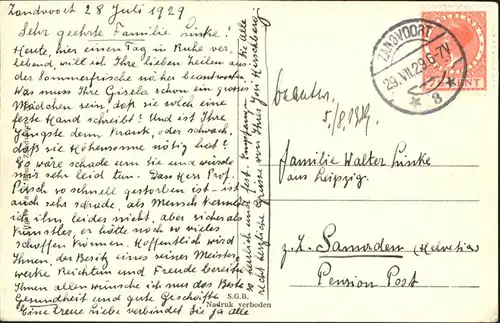 Zandvoort 28 Juli 1929
Sehr geehrte Familie Linke!
Heute, hier einen Tag in Ruhe ver-
lebend, will ich Ihre lieben Zeilen aus
der Sommerfrische näher beantwor-
Was muss Ihre Gisela schon ein grosses
Mädchen sein, daß sie solch eine
feste Hand schreibt! Und ist Ihre
Jüngste denn krank, oder schwach,
daß sie Höhensonne nötig hat?
Es wäre schade um Sie und würde
mir sehr leid tun. Dass Herr Prof.
so schnell gestorben ist - ist
auch sehr schade, als Mensch kannte
ich ihn leider nicht, aber sicher als
Künstler, er hätte noch so vieles
schaffen können. Hoffentlich wird
Ihnen, der Besitz eines seiner Meister-
werke Reichtum und Freude bereiten
Ihnen allen wünsche ich nur das Beste
Gesundheit und gute Geschäfte
Eine treue Liebe verbindet Sie ja alle
so herrlich und fest. Empfangen Sie alle
recht herzliche Grüsse von Ihrer
S.G.B.
Nadruk verboden
ZANDVOORT
29.VII.29.6-7V
3
CENT
beantw.
5/8.1929.
Familie Walter Linke
aus Leipzig.
z. Z. Samaden (Helvetia)
Pension Post